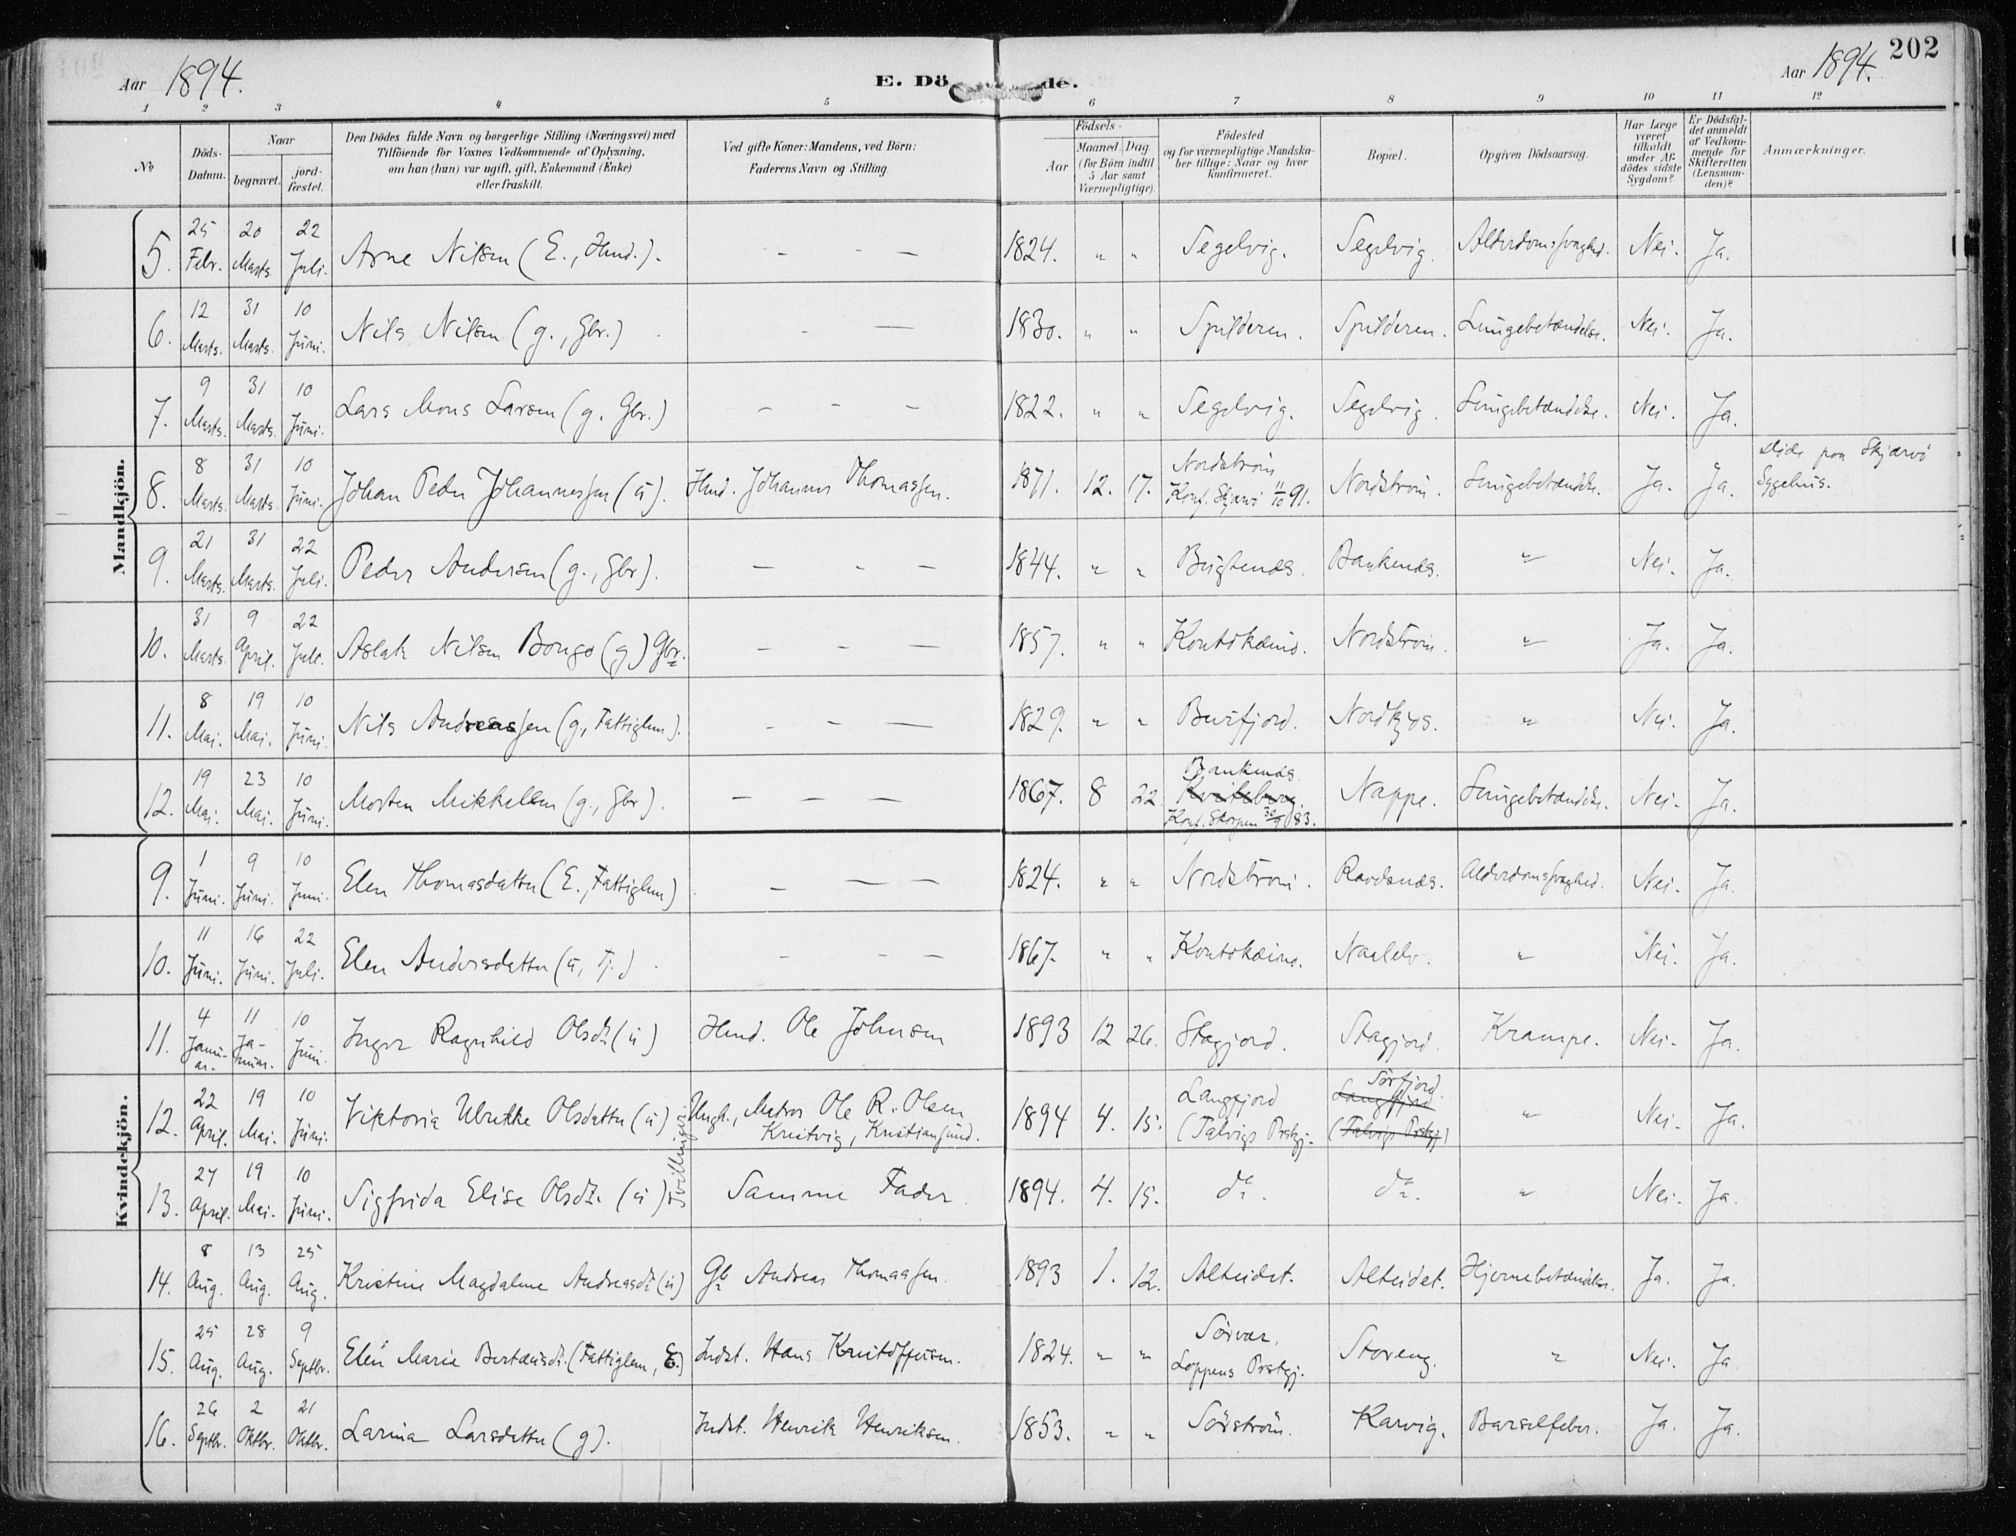 202
Aar 1894. E. Dö de. Aar 1894.
1 2 3 4 5 6 7 8 9 10 11 12
No Döds-Datum. Naar begravet. jord-fæstet. Den Dödes fulde Navn og borgerlige Stilling (Næringsvei) med Tilföiende for Voxnes Vedkommende af Oplysning, om han (hun) var ugift, gift, Enkemand (Enke) eller fraskilt. Ved gifte Koner: Mandens, ved Börn: Faderens Navn og Stilling. Födsels- Aar Maaned. Dag. (for Börn indtil 5 Aar samt Værnepligtige). Födested og for værnepligtige Mandskaber tillige: Naar og hvor konfirmeret. Bopæl. Opgiven Dödsaarsag. Har Læge været tilkaldt under Afdödes sidste Sygdom? Er Dödsfaldet anmeldt af Vedkommende for Skifteretten (Lensmanden)? Anmærkninger.
Mandkjön.
5. 25 Febr. 20 Marts. 22 Juli. Arne Nilsen (E., Hmd.). - - - 1824. " " Segelvig. Segelvig. Alderdomssvaghed. Nei. Ja.
6. 12 Marts. 31 Marts. 10 Juni. Nils Nilsen (g., Gbr.) - — 1830. " " Spilderen. Spilderen. Lungebetændelse. Nei. Ja.
7. 9 Marts. 31 Marts. 10 Juni. Lars Mons Larsen (g. Gbr.) - - - 1822. " " Segelvig. Segelvig. Lungebetændelse. Nei. Ja.
8. 8 Marts. 31 Marts. 10 Juni. Johan Peder Johannessen (ú). Hmd. Johannes Thomassen. 1871. 12. 17. Nordström Konf. Skjærvö 11/10 91. Nordström. Lungebetændelse. Ja. Ja. Döde paa Skjærvö Sygehus.
9. 21 Marts. 31 Marts. 22 Juli. Peder Andersen (g., Gbr.). — - — 1844. " " Bugtenæs. Bankenæs. " Nei. Ja.
10. 31 Marts. 9 April. 22 Juli. Aslak Nilsen Bongo (g) Gbr. - - - 1857. " " Koutokæino. Nordström. " Ja. Ja.
11. 8 Mai. 19 Mai. 10 Juni. Nils Andreassen (g., Fattiglem). - - — 1829. " " Burfjord. " Nei. Ja.
12. 19 Mai. 23 Mai. 10 Juni. Morten Mikkelsen (g., Gbr.). — — — 1867. 8 22 Bankenæs. Kviteberg. Konf. 30/9 83. Nappe. Lungebetændelse. Nei. Ja.
Kvindekjön.
9. 1 Juni. 9 Juni. 10 Juni. Elen Thomasdatter (E., Fattiglem) - — — 1824. " " Nordström. Ravelsnæs. Alderdomssvaghed. Nei. Ja.
10. 11 Juni. 16 Juni. 22 Juli. Elen Andersdatter (ú, Tj.) - - - 1867. " " Koutokæino. Naaelv. " Nei. Ja.
11. 4 Januar. 11 Januar. 10 Juni. Inger Ragnhild Olsdt. (ú) Hmd. Ole Johnsen 1893 12 26. Stagjord. Stagjord. Krampe. Nei. Ja.
12. 22 April. 19 Mai. 10 Juni. Viktoria Ulrikke Olsdatter (ú) Tvillinger. Ungk., Matros Ole R. Olsen Kristvig, Kristiansund. 1894 4. 15. Langfjord (Talvigs Prstgj. Sörfjord. Langfjord (Talvigs Prstgj) " Nei. Ja.
13. 27 April. 19 Mai. 10 Juni. Sigfrida Elise Olsdt. (ú) Samme Fader 1894. 4. 15. do. do. " Nei. Ja.
14. 8 Aug. 13 Aug. 25 Aug. Kristine Magdalene Andreasdt. (ú) Gb. Andreas Thomassen. 1893 1. 12. Alteidet. Alteidet. Hjernebetændelse. Ja. Ja.
15. 25 Aug. 28 Aug. 9 Septbr. Elen Marie Berteusdt. (Fattiglem, E.) Indst. Hans Kristoffersen. 1824. " " Sörvær, Loppens Prstgj. Storeng. " Nei. Ja
16. 26 Septbr. 2 Oktbr. 21 Oktbr. Larina Larsdatter (g). Indst. Henrik Henriksen. 1853. " " Sörström. Karvig. Barselfeber. Ja. Ja.